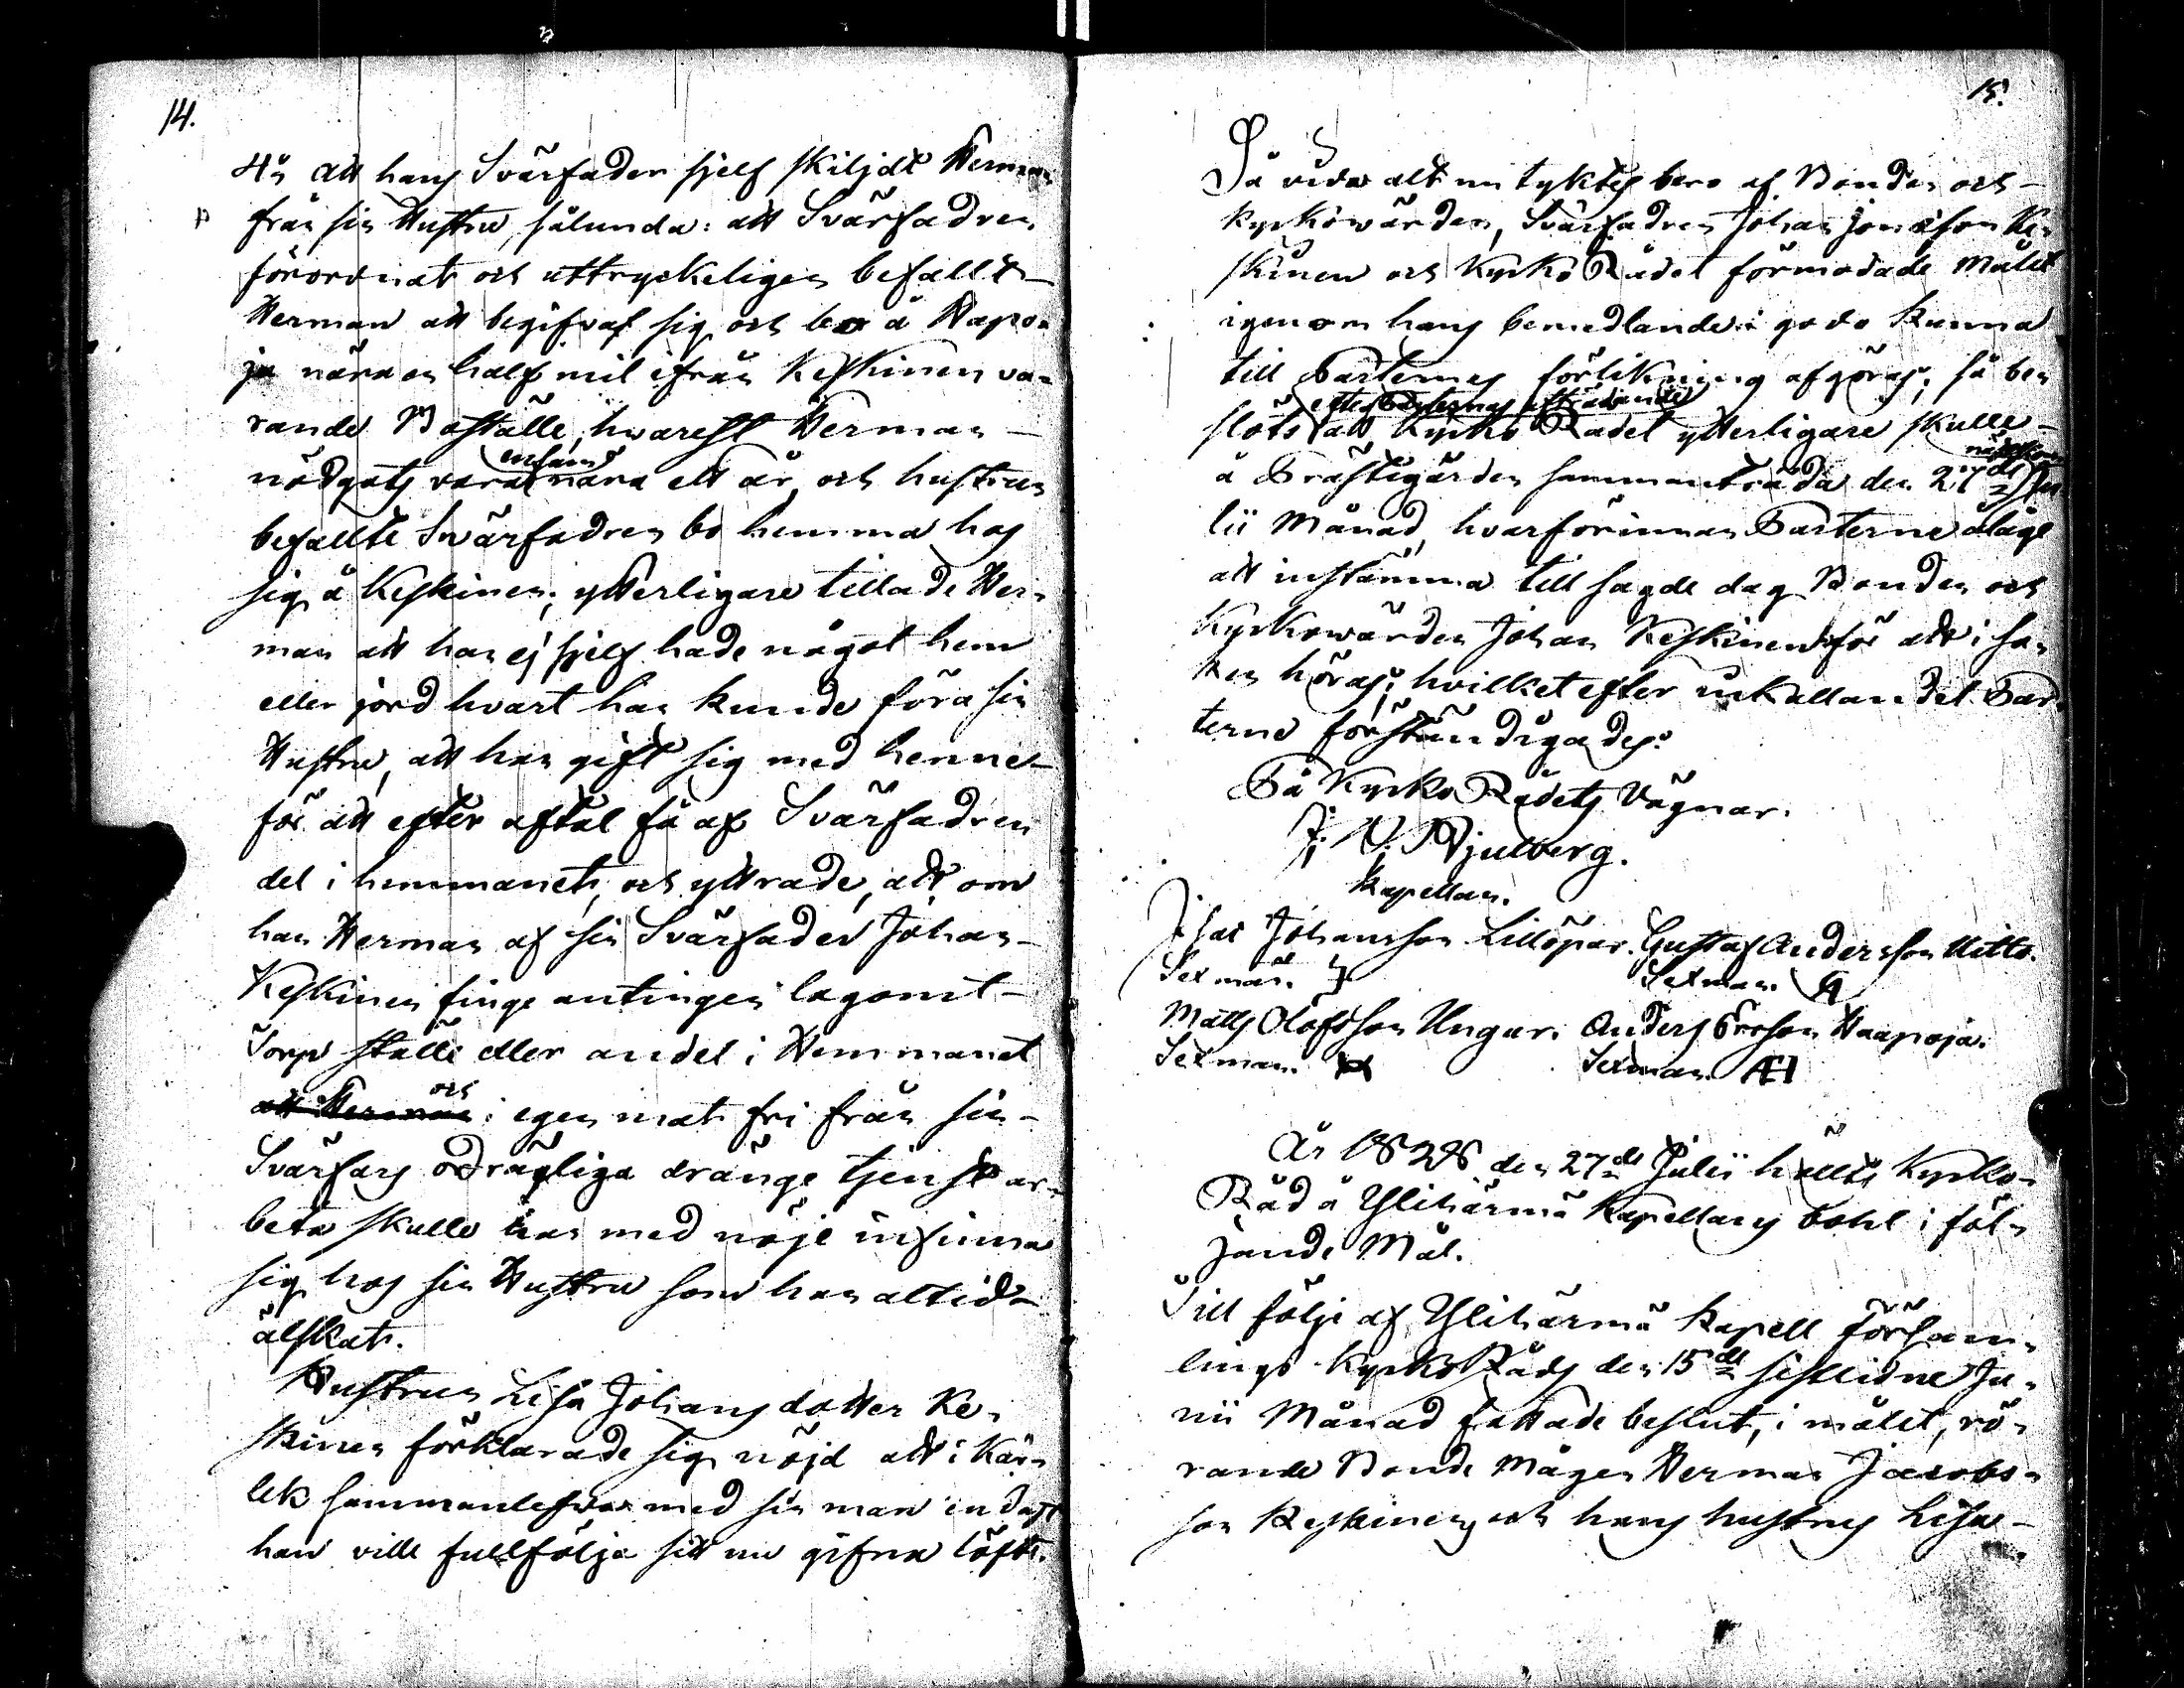 14.
4:o att hans Svärfader sjelf skiljdt Herman
från sin Hustru, sålunda: att Svärfadren
förordnat och uttryckeligen befallt
Herman att begifvas sig och bo å Hapo-
ja nära en half mil ifrån Keskinen va-
rande Boställe, hvarest Herman
ensam
nödgats vara nära ett år, och hustrun
befallte Svärfadren bo hemma hos
sig å Keskinen; ytterligare tillade Her-
man att han ej sjelf hade något hem
eller jord hvart han kunde föra sin
Hustru, att han gift sig med henne
för att efter aftal få af Svärfadren
del i hemmanet, och yttrade, att om
han Herman af sin Svärfader Johan
Keskinen finge antingen lagomt
Torp ställe eller andel i Hemmanet
och
att Herman i egen mat fri från sin
Svärfars odrägliga dränge tjenst ar-
beta skulle han med nöje infinna
sig hos sin Hustru som han altid
älskat.
Hustrun Lisa Johans dotter Ke-
skinen förklarade sig nöjd att i Kär-
lek sammanlefva med sin man endast
han ville fullfölja sitt nu gifna löfte.
15.
Då vidare allt nu tyktes bero af Bonden och
Kyrkowärden, Svärfadren Johan Jonasson Ke-
skinen och Kyrko Rådet förmodade målet
igenom hans bemedlande i godo kunna
till Parternes förlikning afgöras; så be-
efter Parternes afträdande
slöts att Kyrko Rådet ytterligare skulle
nästkom
å Prästegården sammanträda den 27de Ju
lii Månad, hvarförinnan Parterne ålägs
att instämma till sagde dag Bonden och
Kyrkowärden Johan Keskinen för att i sa-
ken höras; hvilket efter inkallandet Par-
terne förständigades.
På Kyrko Rådets Vägnar.
J. W. Bjulberg.
Kapellan.
Isac Johansson Lillöpar. Gustaf Andersson Kitto.
Sexman. Sexman.
Matts Olofsson Ungar. Anders Ersson Haapoja.
Sexman. Sexman. AEH
År 1828 den 27de Julii hölts Kyrko-
Råd å Ylihärmä Kapellans bohl i föl-
jande Mål.
Till följe af Ylihärmä Kapell försam-
lings Kyrko Råds den 15de sistlidne Ju-
nii Månad fattade beslut, i målet, rö-
rande Bonde Mågen Herman Jacobs-
son Keskinens och hans hustrus Lisa